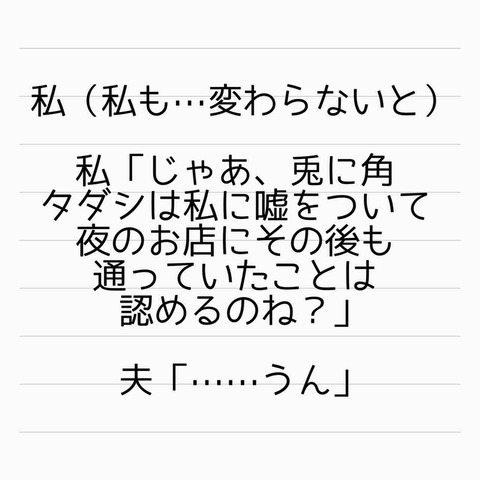 私（私も…変わらないと）
私「じゃあ、兎に角
タダシは私に嘘をついて
夜のお店にその後も
通っていたことは
認めるのね？」
夫「……うん」